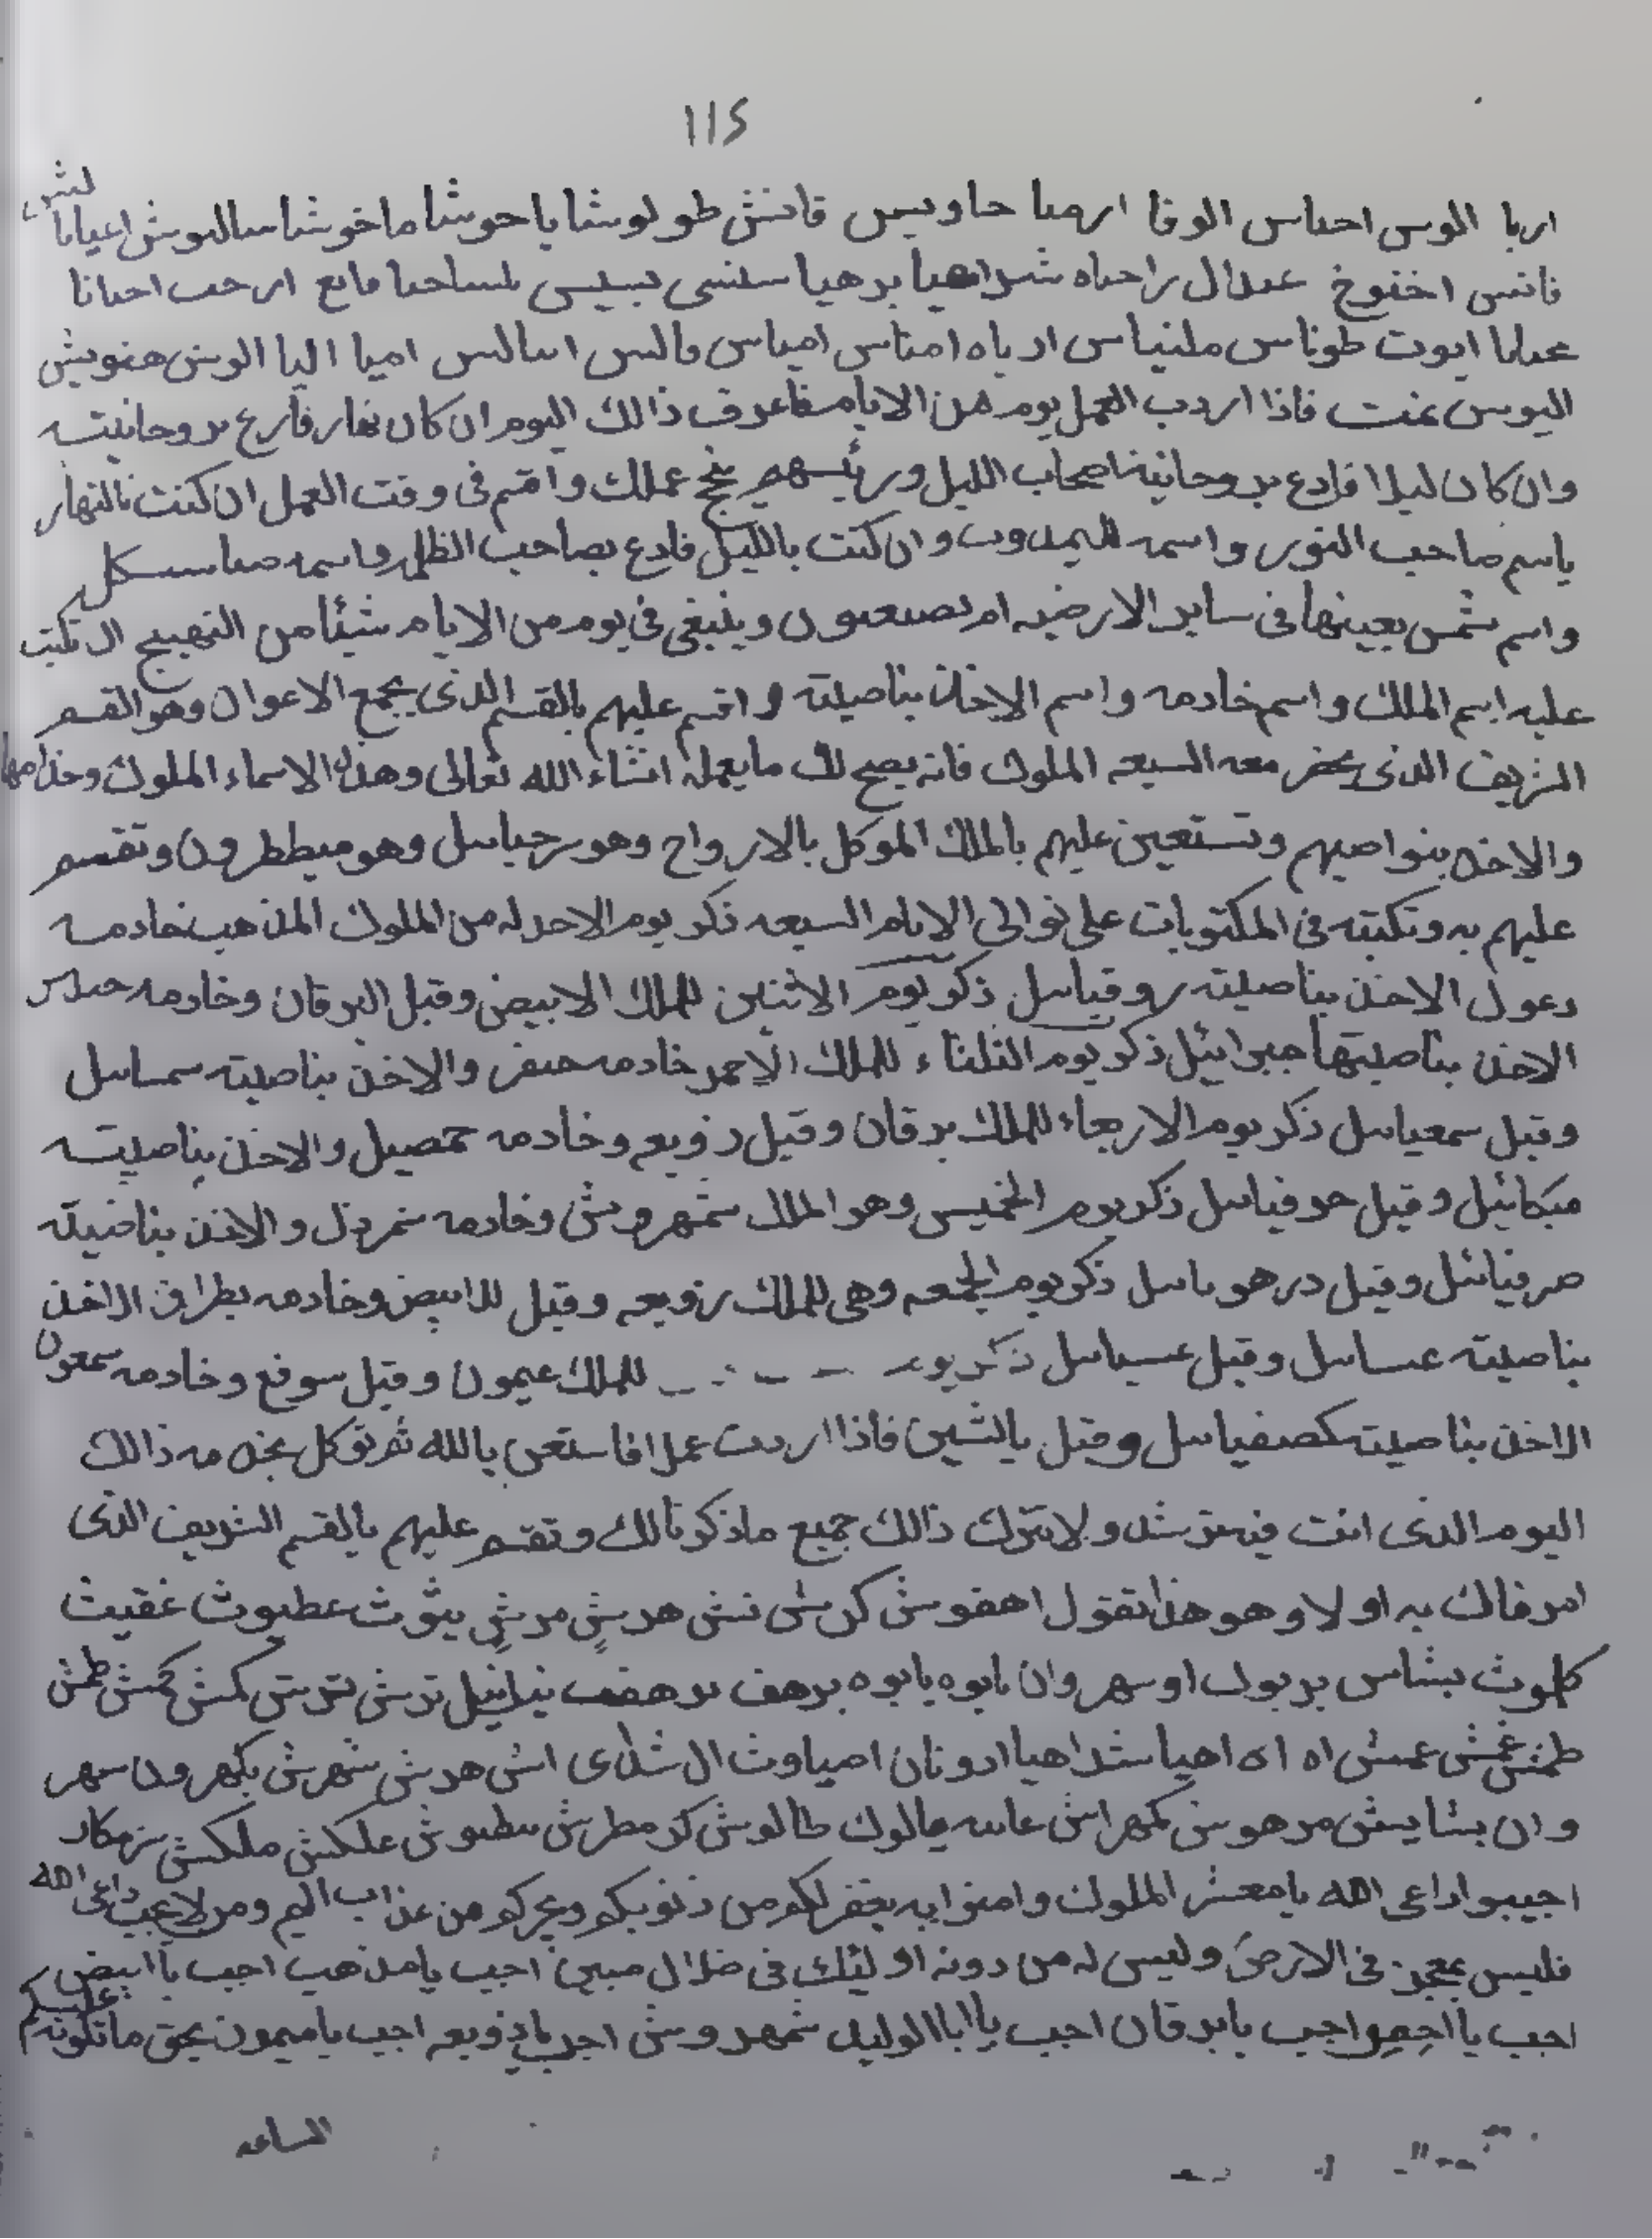 ١١٤
اربا الوس احساس الوفا ارهيا حاويس قانش طولوشا ياحوشا ماخوشا سالوش اعيابا لش
فانس اخنوخ عدال راحياه شراهيا برهيا سنسى بسيسى ارحب احيانا
ايوت طوناس ملنياس ارياه امناس امياس مالس اسالس اميا اليا الوش هنويش
اليوس عنت فاذا اردت العمل يوم من الايام فاعرف ذالك اليوم ان كان نهار فادع بروحانيته
وان كان ليلا فادع بروحانية اصحاب الليل ورئيسهم ينجح عملك واقسم فى وقت العمل ان كنت بالنهار
باسم صاحب النور واسمه وان كنت بالليل فادع بصاحب الظلمه واسمه
واسم شمس بعينها فى ساير الارضيه ام تصنعون وينبغى فى يوم من الايام شيئا من التهييج ان تكتب
عليه اسم الملك واسم خادمه واسم الاخذ بناصيته واقسم عليهم بالقسم الذى يجمع الاعوان وهو القسم
الشريف الذى يحضر معه السبعه الملوك فانه يصح لك ما يعمله انشاء الله تعالى وهذه الاسماء الملوك وخدامها
والاخذ بنواصيهم وتستعين عليهم بالملك الموكل بالارواح وهو سرحيائيل وهو ميططرون وتقسم
عليهم به وتكتبه فى المكتوبات على توالى الايام السبعه ذكر يوم الاحد له من الملوك المذهب خادمه
دعول الاخذ بناصيته روقيائيل ذكر يوم الاثنين للملك الابيض وقيل البرقان وخادمه
الاخذ بناصيتها جبرائيل ذكر يوم الثلثاء للملك الاحمر خادمه والاخذ بناصيته سمسائيل
وقيل سمعيائيل ذكر يوم الاربعاء للملك برقان وقيل زوبعه وخادمه حمصيل والاخذ بناصيته
ميكائيل وقيل حرفيائيل ذكر يوم الخميس وهو الملك شمهروش وخادمه شمردل والاخذ بناصيته
صرفيائيل وقيل درهوبائيل ذكر يوم الجمعه وهى للملك زوبعه وقيل للابيض وخادمه بطراق الاخذ
بناصيته عسائيل وقيل عسيائيل ذكر يوم للملك ميمون وقيل سوفع وخادمه سمعون
الاخذ بناصيته كصفيائيل وقيل بالشين فاذا اردت عملا فاستعن بالله ثم توكل بخدمه ذالك
اليوم الذى انت فيه ترشد ولا تترك ذالك جميع ما ذكرنا لك وتقسم عليهم بالقسم الشريف الذى
امرناك به اولا وهو هذا تقول اهفوش كرش نش هدش مرش يثوث عطبوث غقيث
كلوث بشاس بربوك اوسهروان يابوه يابوه برهف برهفف ينرائيل ترش ترش كمش كمش طمش
طمش غمش عمش اه اه اهيا شراهيا ادوناى اصباوث ال شداى اش هدش شهرش بكهرون سهر
وان بشايش مرهوش كمهراش عاسه عالوك طالوش كرمطرش سطبوش علكش ملكش نرهكار
اجيبوا داعى الله يا معشر الملوك وامنوا به يغفر لكم من ذنوبكم ويجركم من عذاب اليم ومن لا يجب داعى الله
فليس بمعجز فى الارض وليس له من دونه اوليئك فى ضلال مبين اجب يا مذهب اجب يا ابيض
اجب يا احمر اجب يا برقان اجب يا ابا الوليد شمهروش اجب يا زوبعه اجب يا ميمون بحق ما تلوته عليكم
الساعه